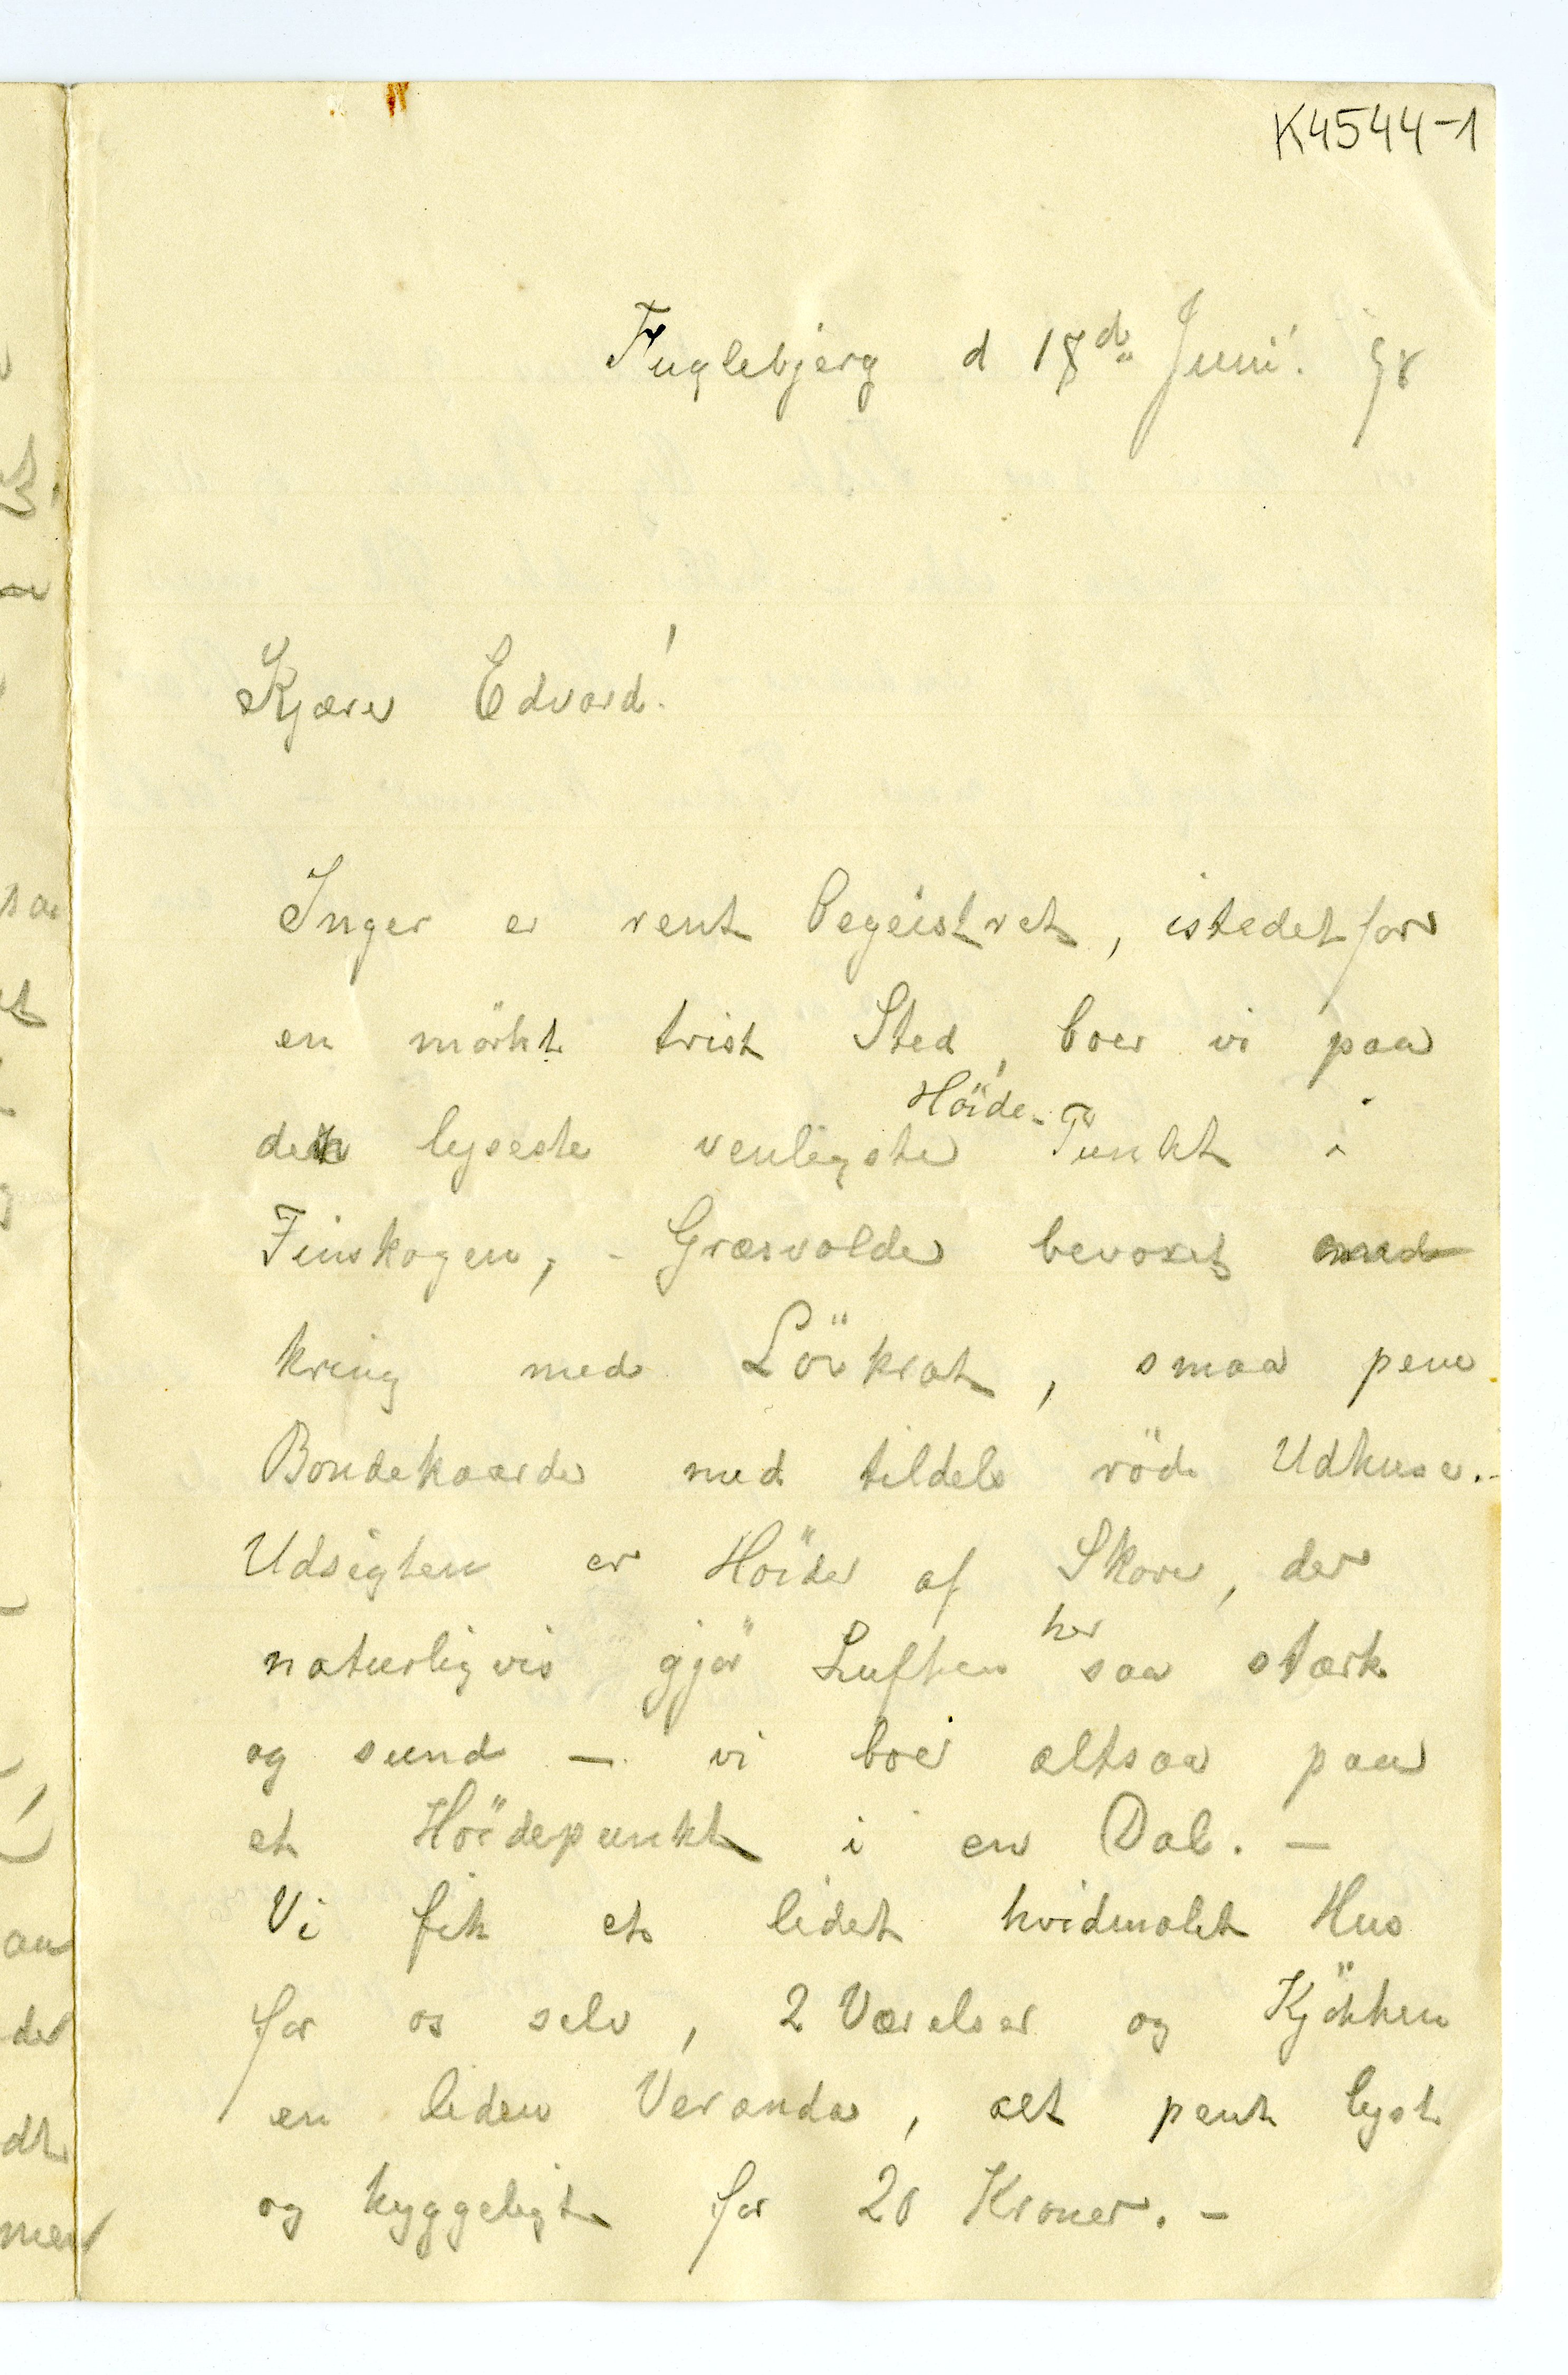 K4544-1
Fuglebjerg d 18de Juni. 98
Kjære Edvard!
Inger er rent begeistret, istedetfor
en mörkt trist Sted, boer vi paa
den lyseste venligste Höide-Punkt i
Finskogen, - Græsvolde bevoxet med
kring med Lövkrat, smaa pene
Bondekaarde med tildels röde Udhuse.-
Udsigten er Höider af Skove, der
naturligvis gjör Luften her saa stærk
og sund - vi boer altsaa paa
et Höidepunkt i en Dal. -
Vi fik et lidet hvidmalet Hus
for os selv, 2 Værelser og Kjökken
en liden Veranda, alt pent lyst
og hyggeligt for 20 Kroner. -